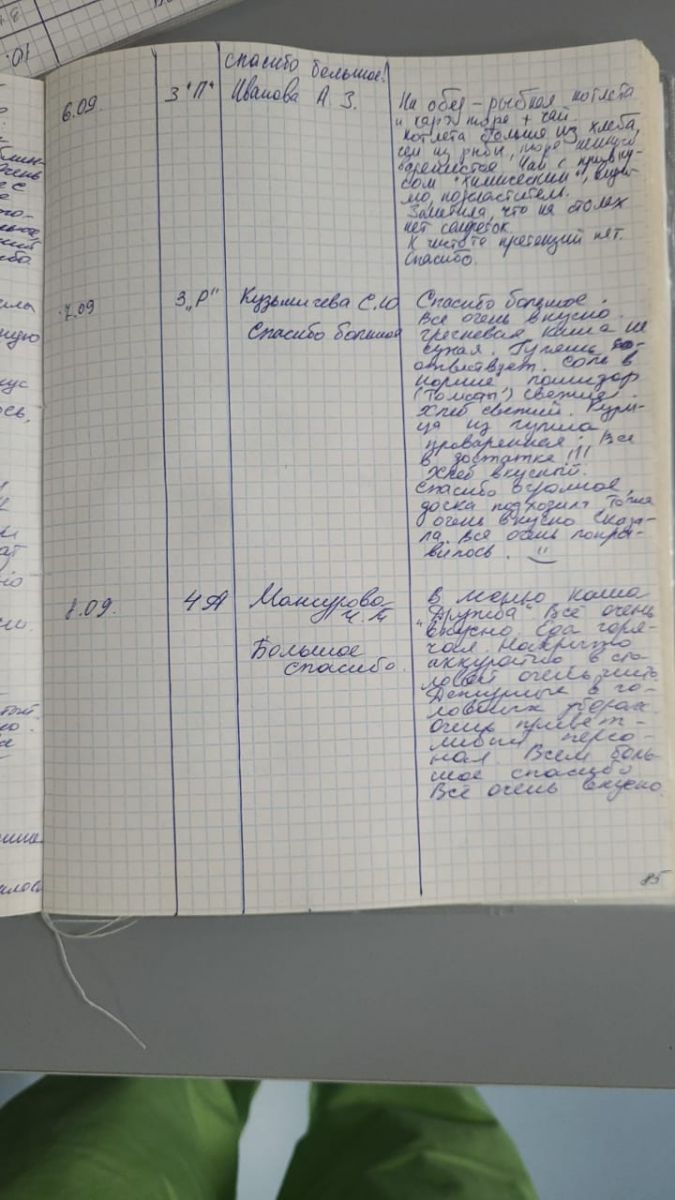 спасибо большое!
6.09 3 "П" Иванова А. З.
На обед - рыбная котлета
и карт. пюре + чай.
Котлета больше из хлеба,
чем из рыбы, пюре
Чай с привку-
сом "химический", види-
мо, подсластитель.
Заметила, что на столах
нет салфеток.
К чистоте претензий нет.
Спасибо.
7.09 3 „Р" Кузьмичева С.Ю
Спасибо большое
Спасибо большое.
Все очень вкусно.
гречневая каша не
сухая. Гуляш со-
ответствует. Соль в
норме помидор
(томаты) свежие.
Хлеб свежий. Кури-
ца из гуляша
проваренная. Все
в достатке !!!
Хлеб вкусный.
Спасибо огромное,
доска подходит тоже
очень вкусно сказа-
ла. Все очень понра-
вилось.
8.09. 4 А Мансурова
Большое
спасибо.
В меню каша
"Дружба" Всё очень
вкусно. Еда горя-
чая. Накрыто
аккуратно в сто-
ловой очень чисто
Дежурные в го-
ловных уборах.
очень привет-
ливый персо-
нал. Всем боль-
шое спасибо
Всё очень вкусно.
85